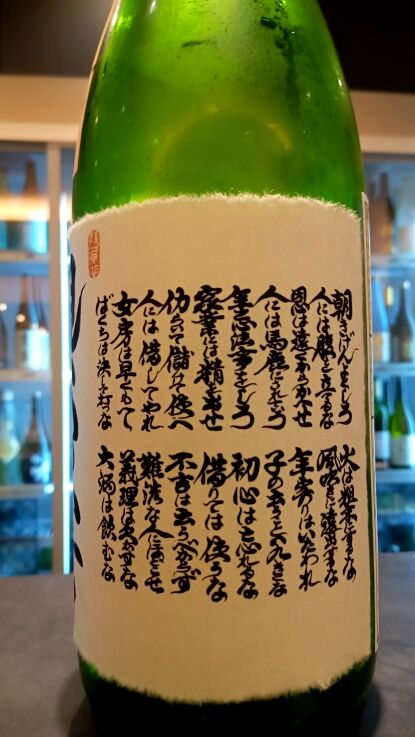 朝きげんよくしろ
人には腹を立てるな
恩は遠くからかくせ
人には馬鹿にされていろ
年忌法事をしろ
家業には精を出せ
仂いて儲けて使へ
人には貸してやれ
女房は早くもて
ばくちは決して打つな
火は粗末にするな
風吹きに遠出するな
年寄りはいたわれ
子の言うこと八九きくな
初心は忘れるな
借りては使うな
不吉は云うべからず
難渋な人にほどこせ
義理は欠かすな
大酒は飲むな